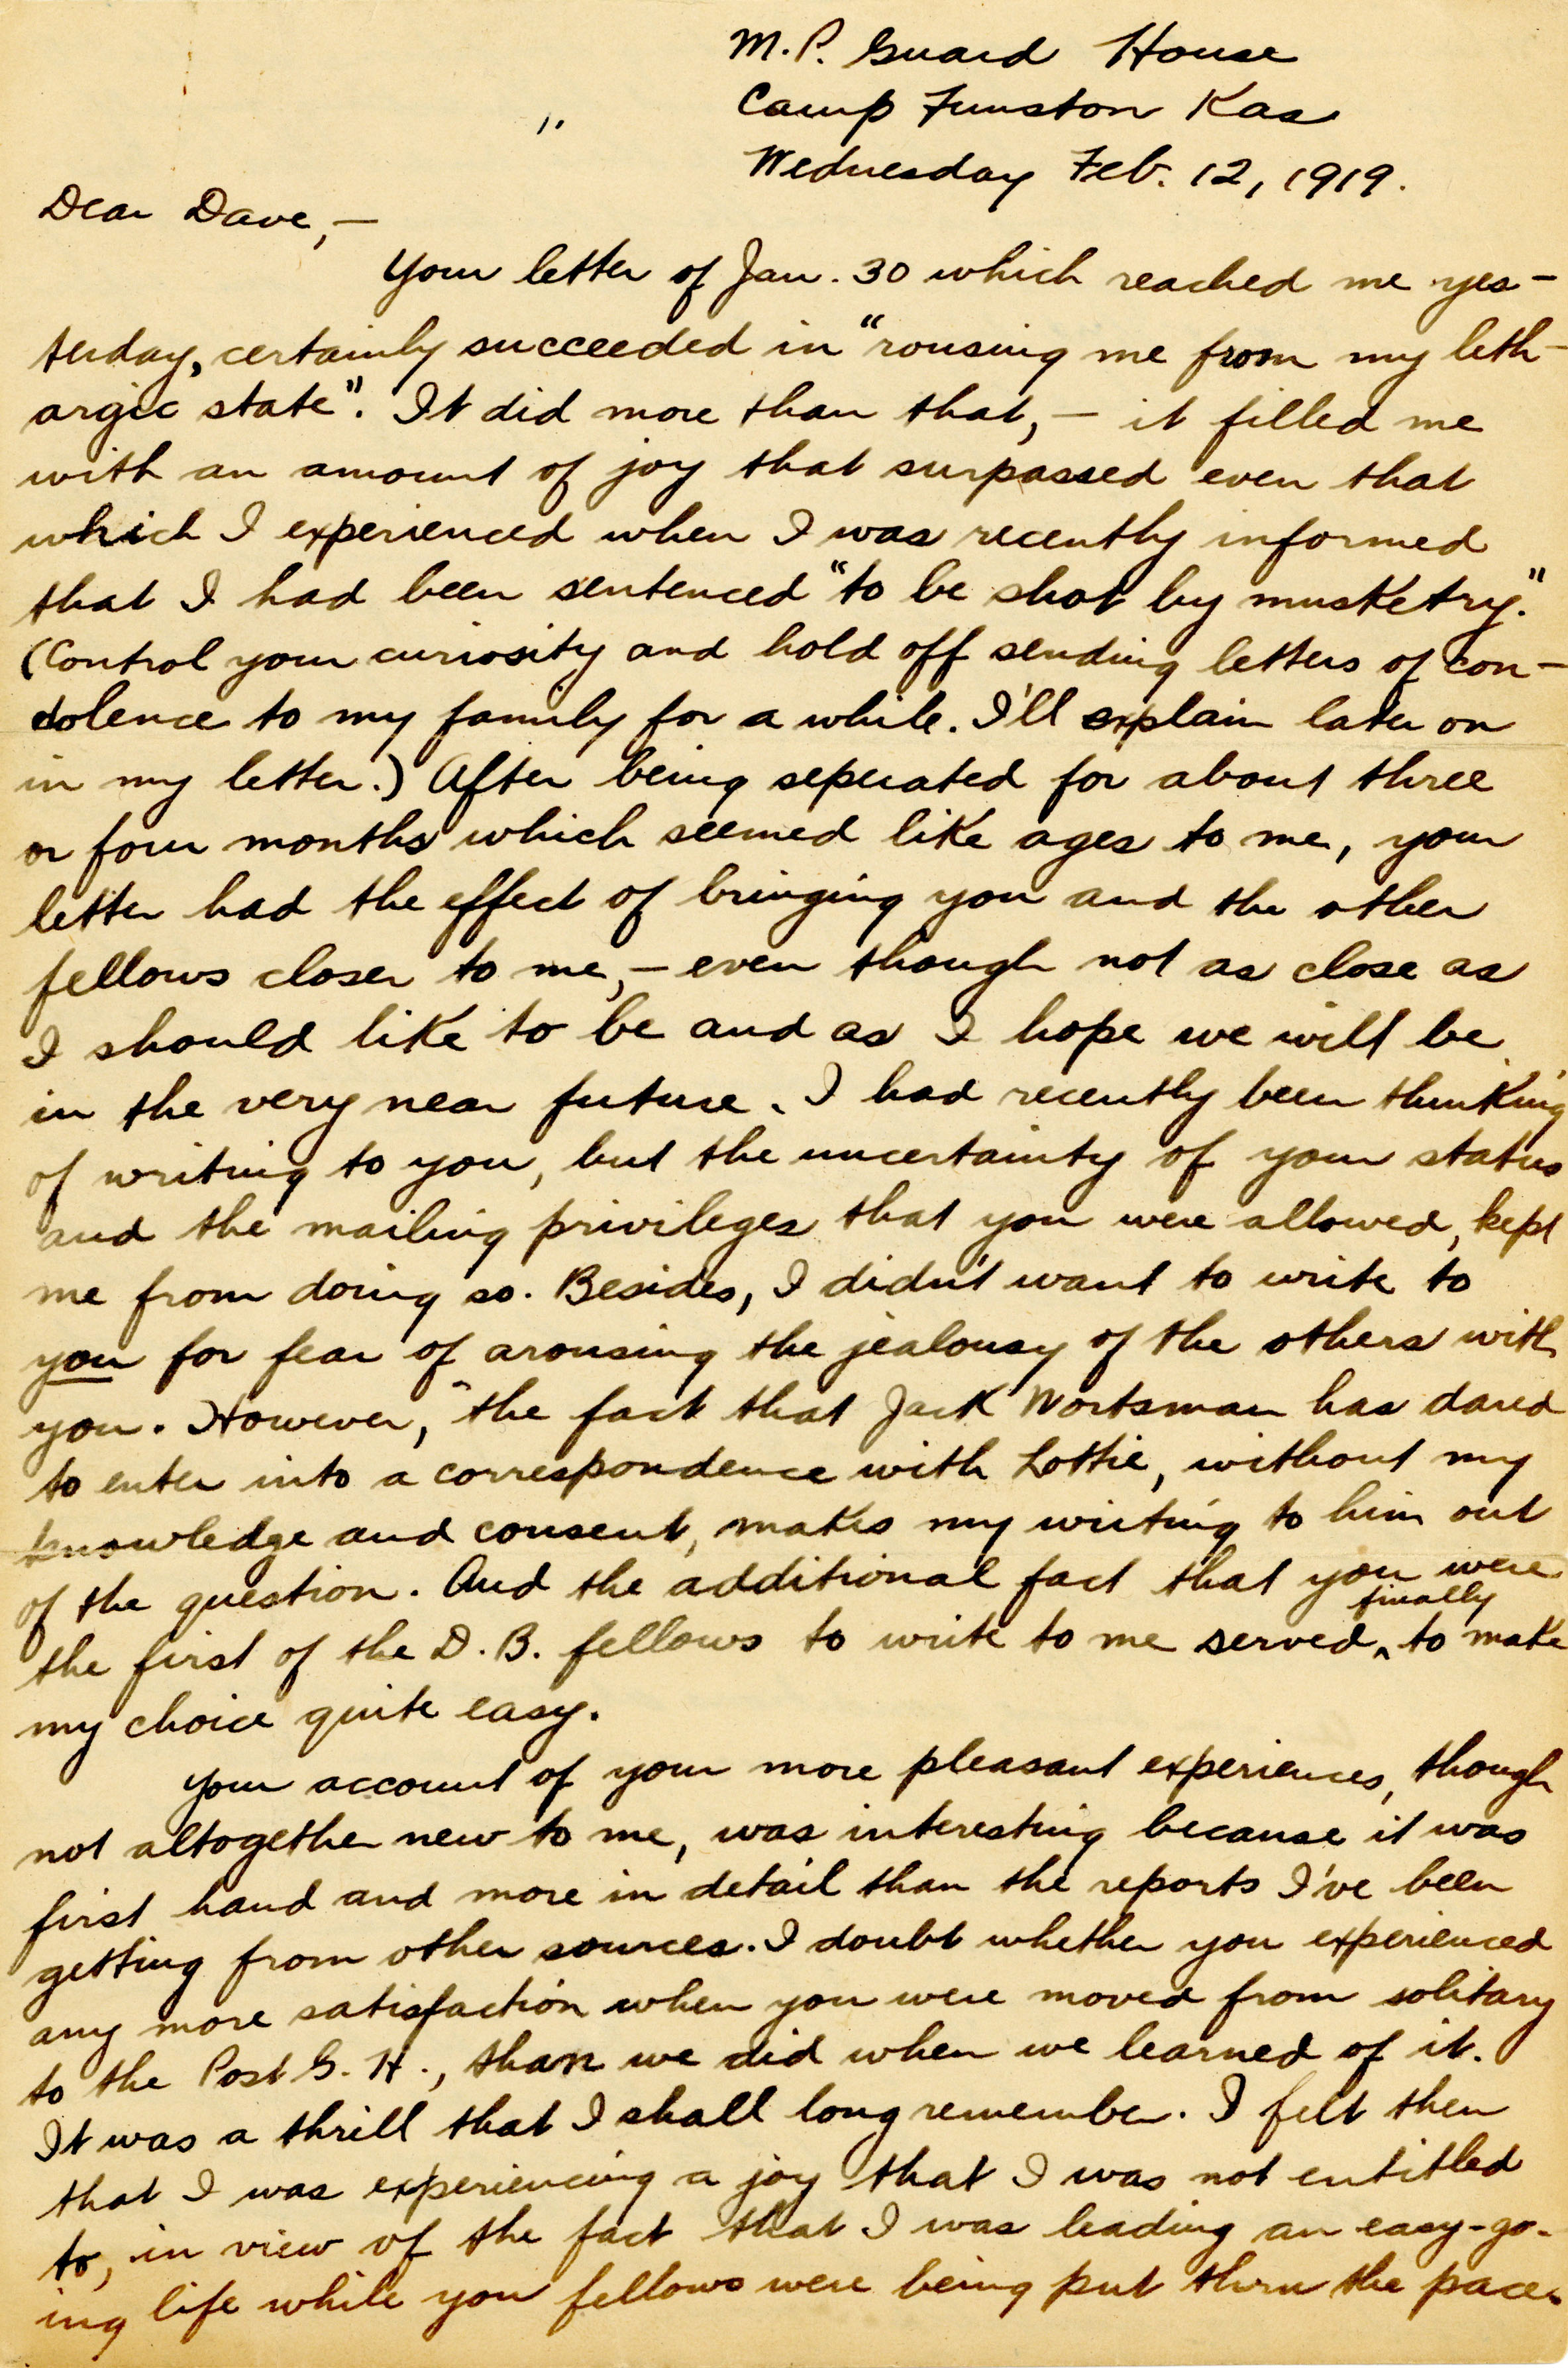 M.P. Guard House
Camp Funston Kas
Wednesday Feb. 12, 1919.
Dear Dave,—
Your letter of Jan. 30 which reached me yes-
terday, certainly succeeded in "rousing me from my leth-
argic state". It did more than that,— it filled me
with an amount of joy that surpassed even that
which I experienced when I was recently informed
that I had been sentenced "to be shot by musketry."
(Control your curiosity and hold off sending letters of con-
dolence to my family for a while. I'll explain later on
in my letter.) After being seperated for about three
or four months which seemed like ages to me, your
letter had the effect of bringing you and the other
fellows closer to me,— even though not as close as
I should like to be and as I hope we will be
in the very near future. I had recently been thinking
of writing to you, but the uncertainty of your status
and the mailing privileges that you were allowed, kept
me from doing so. Besides, I didn't want to write to
you for fear of arousing the jealousy of the others with
you. However, the fact that Jack Wortsman has dared
to enter into a correspondence with Lottie, without my
knowledge and consent, makes my writing to him out
of the question. And the additional fact that you were
the first of the D.B. fellows to write to me served finally to make
my choice quite easy.
Your account of your more pleasant experiences, though
not altogether new to me, was interesting because it was
first hand and more in detail than the reports I've been
getting from other sources. I doubt whether you experienced
any more satisfaction when you were moved from solitary
to the Post G.H., than we did when we learned of it.
It was a thrill that I shall long remember. I felt then
that I was experiencing a joy that I was not entitled
to, in view of the fact that I was leading an easy-go-
ing life while you fellows were being put thru the paces.